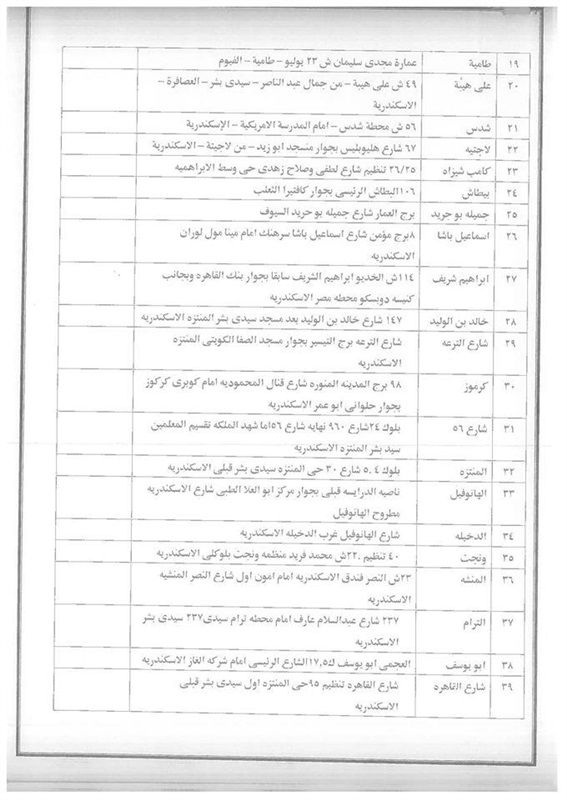 ١٩ طامية عمارة مجدى سليمان ش ٢٣ يوليو – طامية – الفيوم
٢٠ على هيبة ٤٩ ش على هيبة – من جمال عبد الناصر – سيدى بشر – العصافرة –
الاسكندرية
٢١ شدس ٥٦ ش محطة شدس – امام المدرسة الامريكية – الإسكندرية
٢٢ لاجتيه ٦٧ شارع هليوبليس بجوار منسجد ابو زيد – من لاجيتة – الاسكندرية
٢٣ كامب شيزاه ٣٦/٢٥ تنظيم شارع لطفى وصلاح زهدى حى وسط الابراهميه
٢٤ بيطاش ١٠٦البطاش الرئيسى بجوار كافتيرا الثعلب
٢٥ جميله بو جريد برج العمار شارع جميله بو حريد السيوف
٢٦ اسماعيل باشا ٨برج مؤمن شارع اسماعيل باشا سرهنك امام مينا مول لوران
الاسكندريه
٢٧ ابراهيم شريف ١١٤ش الخديو ابراهيم الشريف سابقا بجوار بنك القاهره وبجانب
كنيسه دوبسكو محطه مصر الاسكندريه
٢٨ خالد بن الوليد ١٤٧ شارع خالد بن الوليد بعد مسجد سيدى بشر المنتزه الاسكندريه
٢٩ شارع الترعه شارع الترعه برج التيسير بجوار مسجد الصفا الكويتى المنتزه
الاسكندريه
٣٠ كرموز ٩٨ برج المدينه المنوره شارع قنال المحموديه امام كوبرى كركوز
بجوار حلوانى ابو عمر الاسكندريه
٣١ شارع ٥٦ بلوك ٢٤شارع ٩٦٠ نهايه شارع ٥٦اما شهد الملكه تقسيم المعلمين
سيد بشر المنتزه الاسكندريه
٣٢ المنتزه بلوك ٥.٤ شارع ٣٠ حى المنتزه سيدى بشر قبلى الاسكندريه
٣٣ الهانوفيل ناصيه الدرايسه قبلى بجوار مركز ابو العلا الطبى شارع الاسكندريه
مطروح الهانوفيل
٣٤ الدخيله شارع الهانوفيل غرب الدخيله الاسكندريه
٣٥ ونجت ٤٠ تنظيم ٢٢.ش محمد فريد منظمه ونجت بلوكلى الاسكندريه
٣٦ المنشه ٢٣ش النصر فندق الاسكندريه امام امون اول شارع النصر المنشيه
الاسكندريه
٣٧ الترام ٢٣٧ شارع عبدالسلام عارف امام محطه ترام سيدى٢٣٧ سيدى بشر
الاسكندريه
٣٨ ابو يوسف العجمى ابو يوسف ك١٧,٥الشارع الرئيسى امام شركه الغاز الاسكندريه
٣٩ شارع القاهره شارع القاهره تنظيم ٩٥حى المنتزه اول سيدى بشر قبلى
الاسكندريه